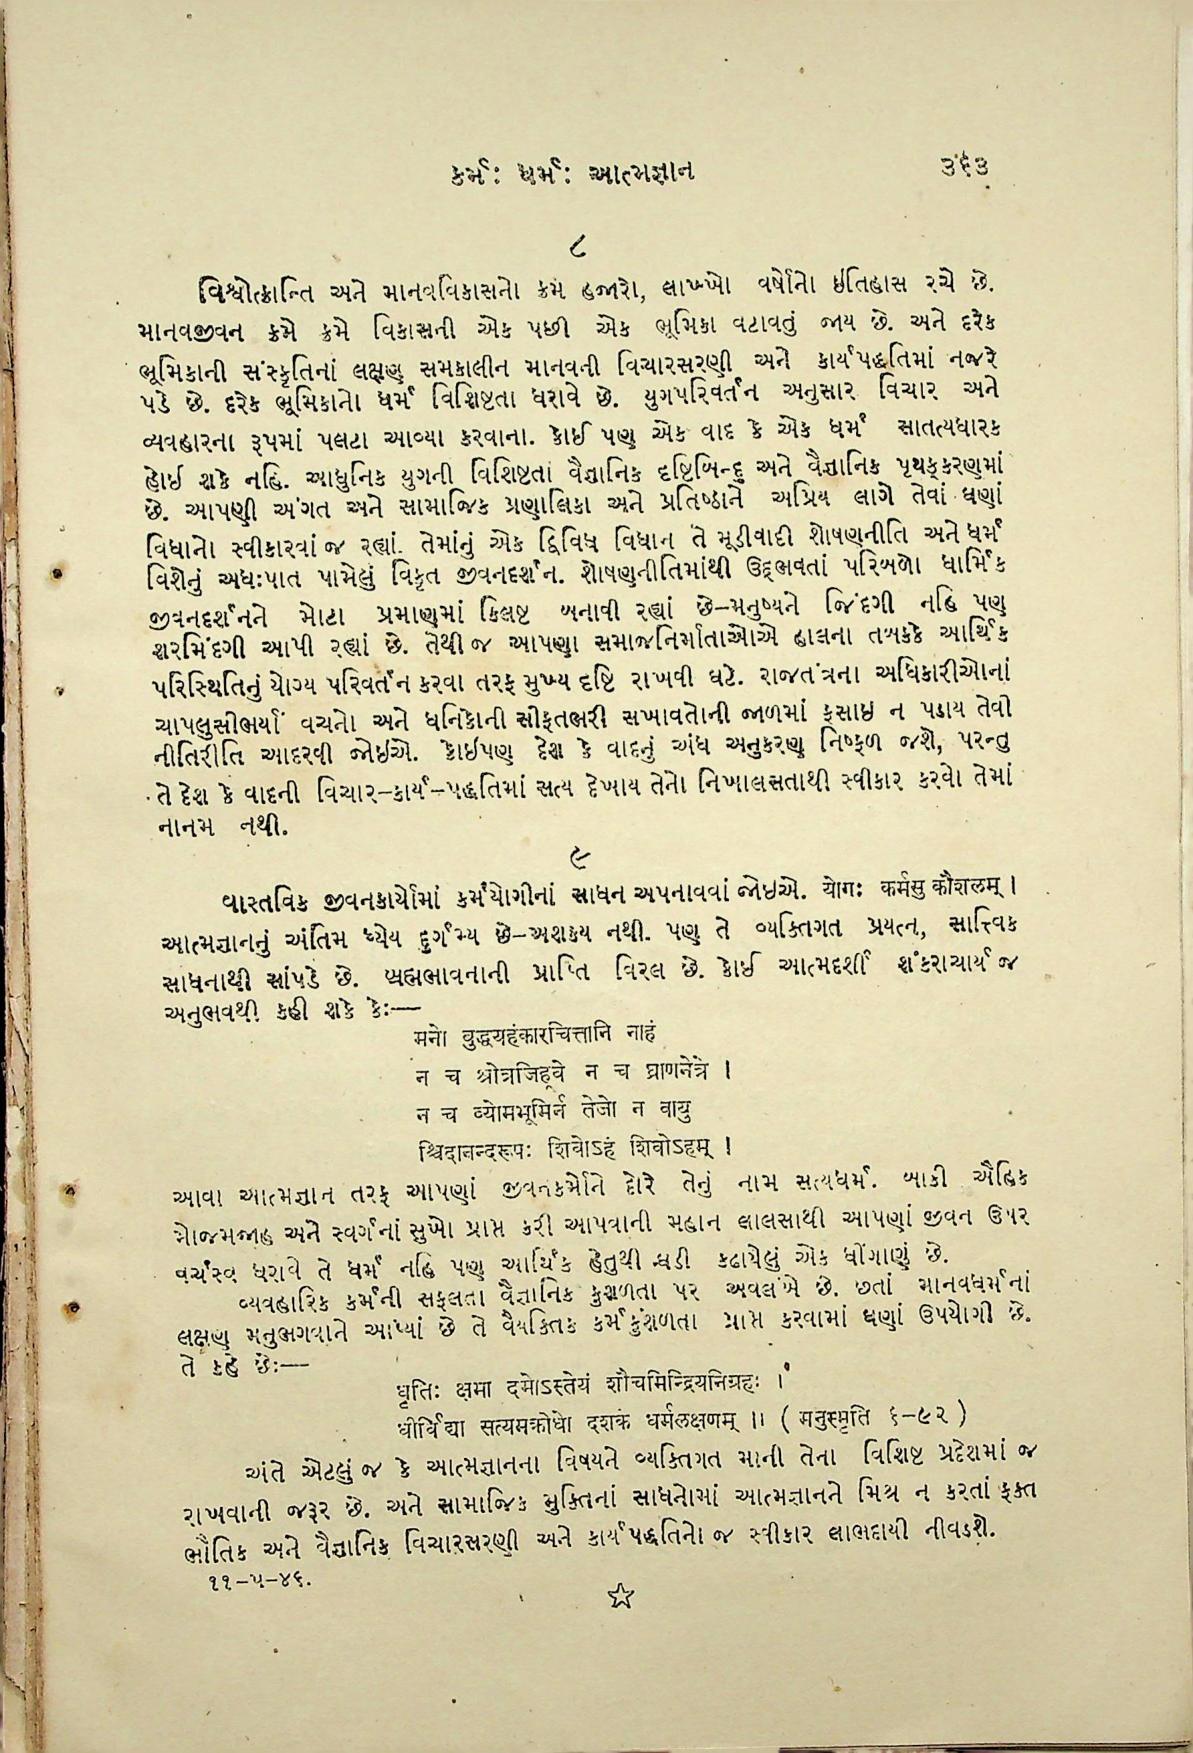 કર્મ: ધર્મ: આત્મજ્ઞાન ૩૬૩
૮
વિશ્વોત્ક્રાન્તિ અને માનવવિકાસનો ક્રમ હજારો, લાખ્ખો વર્ષોનો ઇતિહાસ રચે છે.
માનવજીવન ક્રમે ક્રમે વિકાસની એક પછી એક ભૂમિકા વટાવતું જાય છે. અને દરેક
ભૂમિકાની સંસ્કૃતિનાં લક્ષણ સમકાલીન માનવની વિચારસરણી અને કાર્યપદ્ધતિમાં નજરે
પડે છે. દરેક ભૂમિકાનો ધર્મ વિશિષ્ટતા ધરાવે છે. યુગપરિવર્તન અનુસાર વિચાર અને
વ્યવહારના રૂપમાં પલટા આવ્યા કરવાના. કોઈ પણ એક વાદ કે એક ધર્મ સાતત્યધારક
હોઇ શકે નહિ. આધુનિક યુગની વિશિષ્ટતા વૈજ્ઞાનિક દૃષ્ટિબિન્દુ અને વૈજ્ઞાનિક પૃથક્કરણમાં
છે. આપણી અંગત અને સામાજિક પ્રણાલિકા અને પ્રતિષ્ઠાને અપ્રિય લાગે તેવાં ઘણાં
વિધાનો સ્વીકારવાં જ રહ્યાં. તેમાંનું એક દ્વિવિધ વિધાન તે મૂડીવાદી શોષણનીતિ અને ધર્મ
વિશેનું અધઃપાત પામેલું વિકૃત જીવનદર્શન. શોષણનીતિમાંથી ઉદ્દભવતાં પરિબળો ધાર્મિક
જીવનદર્શનને મોટા પ્રમાણમાં કિલષ્ટ બનાવી રહ્યાં છે–મનુષ્યને જિંદગી નહિ પણ
શરમિંદગી આપી રહ્યાં છે. તેથી જ આપણા સમાજનિર્માતાઓએ હાલના તબક્કે આર્થિક
પરિસ્થિતિનું યોગ્ય પરિવર્તન કરવા તરફ મુખ્ય દૃષ્ટિ રાખવી ઘટે. રાજતંત્રના અધિકારીઓનાં
ચાપલુસીભર્યાં વચનો અને ધનિકોની સીફતભરી સખાવતોની જાળમાં ફસાઇ ન પડાય તેવી
નીતિરીતિ આદરવી જોઇએ. કોઇપણ દેશ કે વાદનું અંધ અનુકરણ નિષ્ફળ જશે, પરન્તુ
તે દેશ કે વાદની વિચાર–કાર્ય–પદ્ધતિમાં સત્ય દેખાય તેનો નિખાલસતાથી સ્વીકાર કરવો તેમાં
નાનમ નથી.
૯
વાસ્તવિક જીવનકાર્યોમાં કર્મયોગીનાં સાધન અપનાવવાં જોઇએ. योगः कर्मसु कौशलम् ।
આત્મજ્ઞાનનું અંતિમ ધ્યેય દુર્ગમ્ય છે–અશક્ય નથી. પણ તે વ્યક્તિગત પ્રયત્ન, સાત્ત્વિક
સાધનાથી સાંપડે છે. બ્રહ્મભાવનાની પ્રાપ્તિ વિરલ છે. કોઈ આત્મદર્શી શંકરાચાર્ય જ
અનુભવથી કહી શકે કેઃ—
मनो बुद्धयहंकारचित्तानि नाहं
न च श्रोत्रजिह्वे न च घ्राणनेत्रे ।
न च व्योमभूमिर्न तेजो न वायु
श्चिदानन्दरूपः शिवोऽहं शिवोऽहम् ।
આવા આત્મજ્ઞાન તરફ આપણાં જીવનકર્મોને દોરે તેનું નામ સત્યધર્મ. બાકી ઐહિક
મોજમજાહ અને સ્વર્ગનાં સુખો પ્રાપ્ત કરી આપવાની મહાન લાલસાથી આપણાં જીવન ઉપર
વર્ચસ્વ ધરાવે તે ધર્મ નહિ પણ આર્થિક હેતુથી ઘડી કઢાયેલું એક ધોંગાણું છે.
વ્યવહારિક કર્મની સફલતા વૈજ્ઞાનિક કુશળતા પર અવલંબે છે. છતાં માનવધર્મનાં
લક્ષણ મનુભગવાને આપ્યાં છે તે વૈયક્તિક કર્મકુશળતા પ્રાપ્ત કરવામાં ઘણાં ઉપયોગી છે.
તે કહે છેઃ—
धृतिः क्षमा दमोऽस्तेयं शौचमिन्द्रियनिग्रहः ।
धीर्विद्या सत्यमक्रोधो दशकं धर्मलक्षणम् ।। ( मनुस्मृति ६–९२ )
અંતે એટલું જ કે આત્મજ્ઞાનના વિષયને વ્યક્તિગત માની તેના વિશિષ્ટ પ્રદેશમાં જ
રાખવાની જરૂર છે. અને સામાજિક મુક્તિનાં સાધનોમાં આત્મજ્ઞાનને મિશ્ર ન કરતાં ફક્ત
ભૌતિક અને વૈજ્ઞાનિક વિચારસરણી અને કાર્યપદ્ધતિનો જ સ્વીકાર લાભદાયી નીવડશે.
૧૧–૫–૪૬.